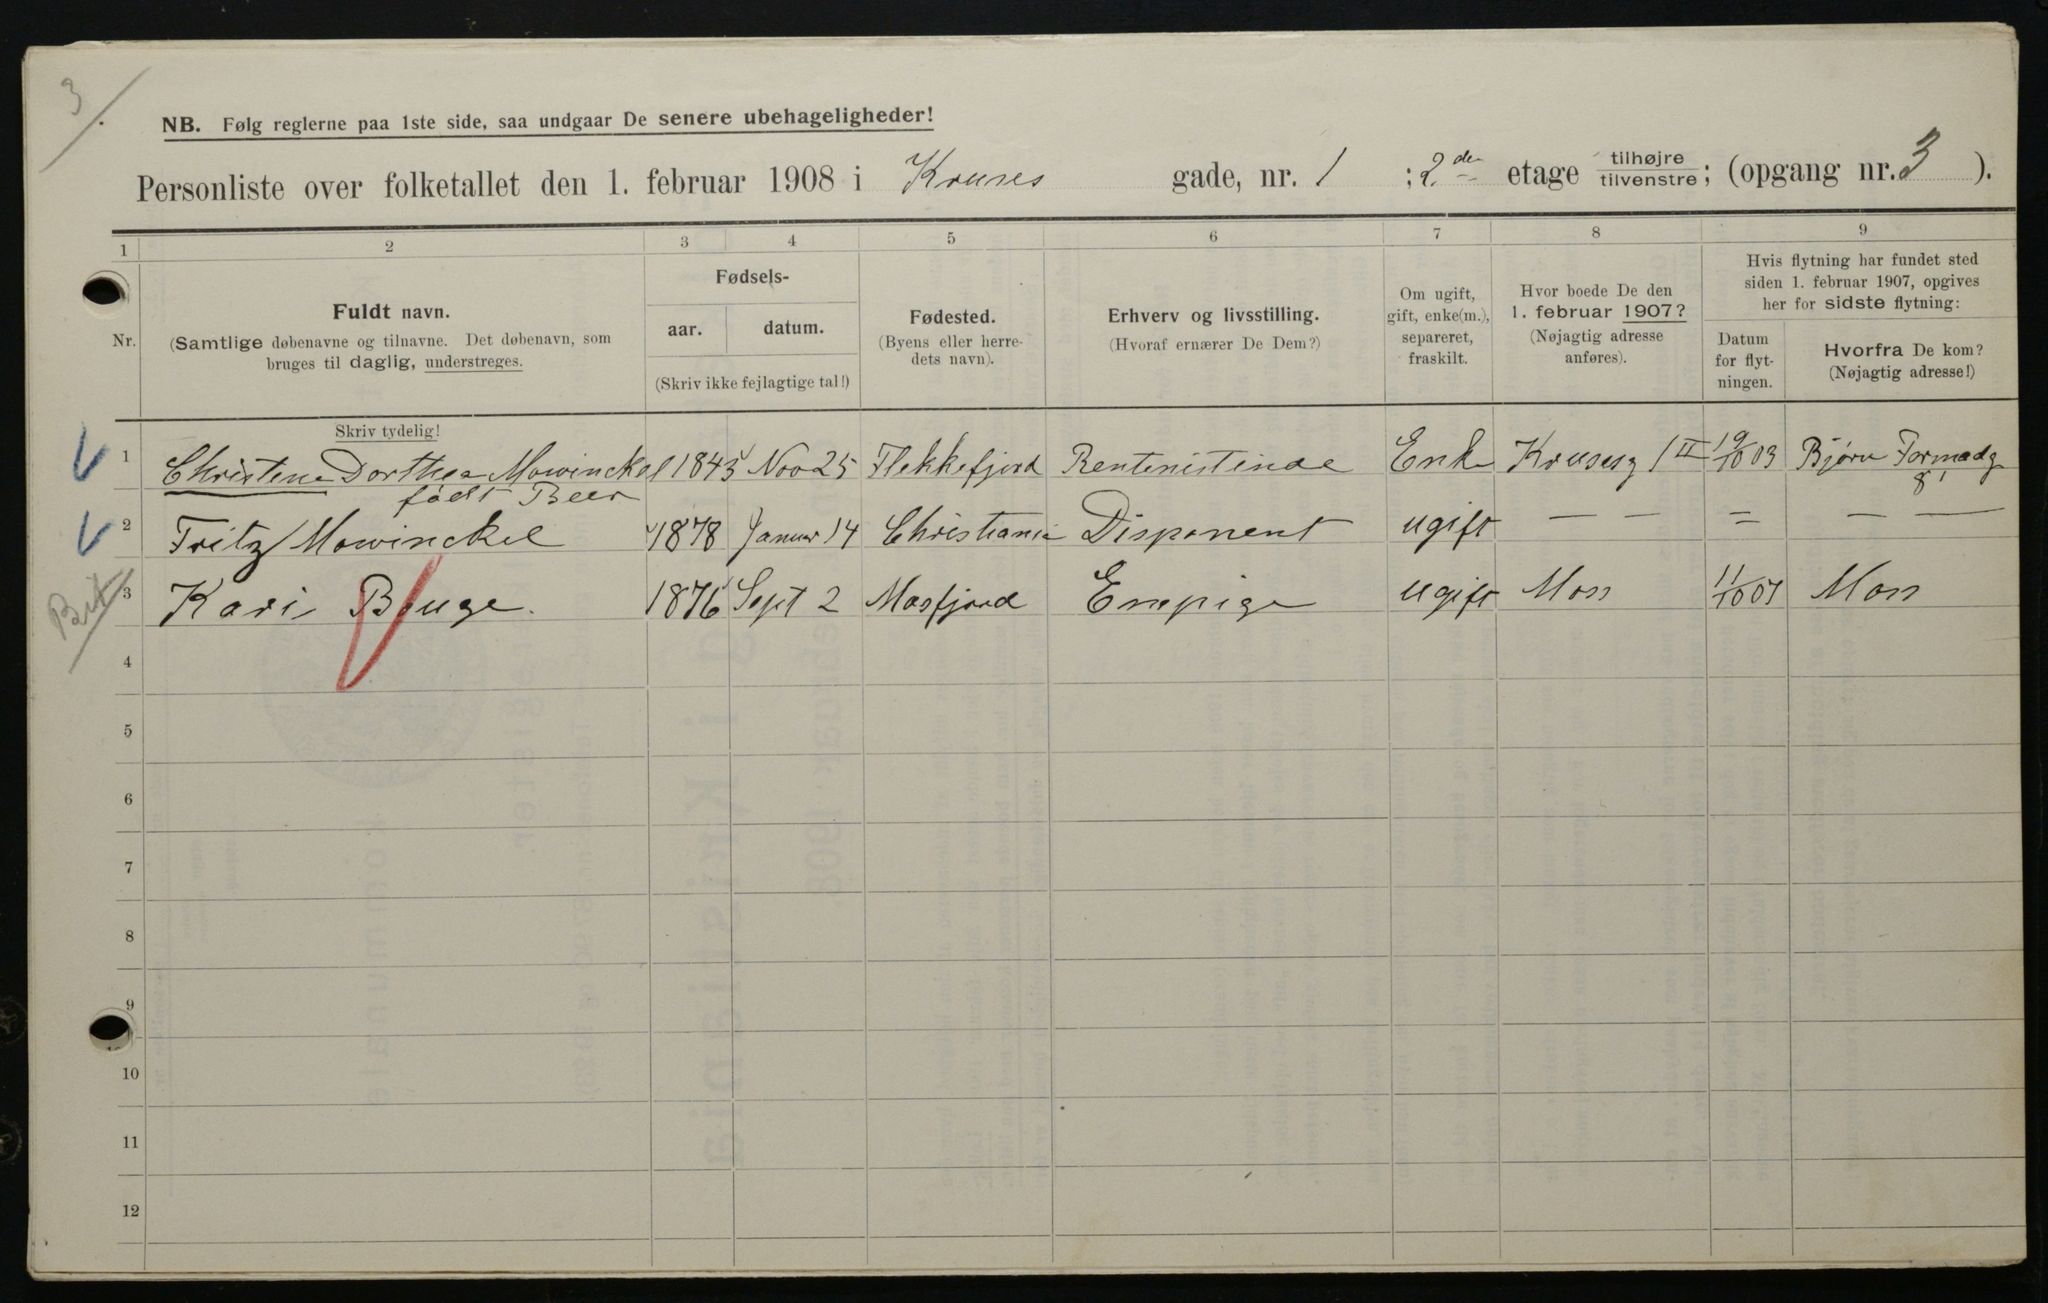 3
NB. Følg reglerne paa 1ste side, saa undgaar De senere ubehageligheder!
Personliste over folketallet den 1. februar 1908 i Kruses gade, nr. 1 ; 2den etage tilhøjre tilvenstre; (opgang nr. 3 ).
1 2 3 4 5 6 7 8 9
Nr.
Fuldt navn.
(Samtlige døbenavne og tilnavne. Det døbenavn, som
bruges til daglig, understreges.
Fødsels-
aar. datum.
(Skriv ikke fejlagtige tal!)
Fødested.
(Byens eller herre-
dets navn).
Erhverv og livsstilling.
(Hvoraf ernærer De Dem?)
Om ugift,
gift, enke(m.),
separeret,
fraskilt.
Hvor boede De den
1. februar 1907?
(Nøjagtig adresse
anføres).
Hvis flytning har fundet sted
siden 1. februar 1907, opgives
her for sidste flytning:
Datum
for flyt-
ningen.
Hvorfra De kom?
(Nøjagtig adresse!)
Skriv tydelig!
1 Christene Dorthea Mowinckel 1845 Nov 25 Flekkefjord Rentenistinde Enke Krusesg 1 II 19/10 03 Bjørn Farmadg
født Beer 8
2 Fritz Mowinckel 1878 Januar 14 Christiania Disponent ugift — — = — —
3 Kari Bauge. 1876 Sept 2 Masfjord Enepige ugift Mon 11/10 07 Mon
4
5
6
7
8
9
10
11
12